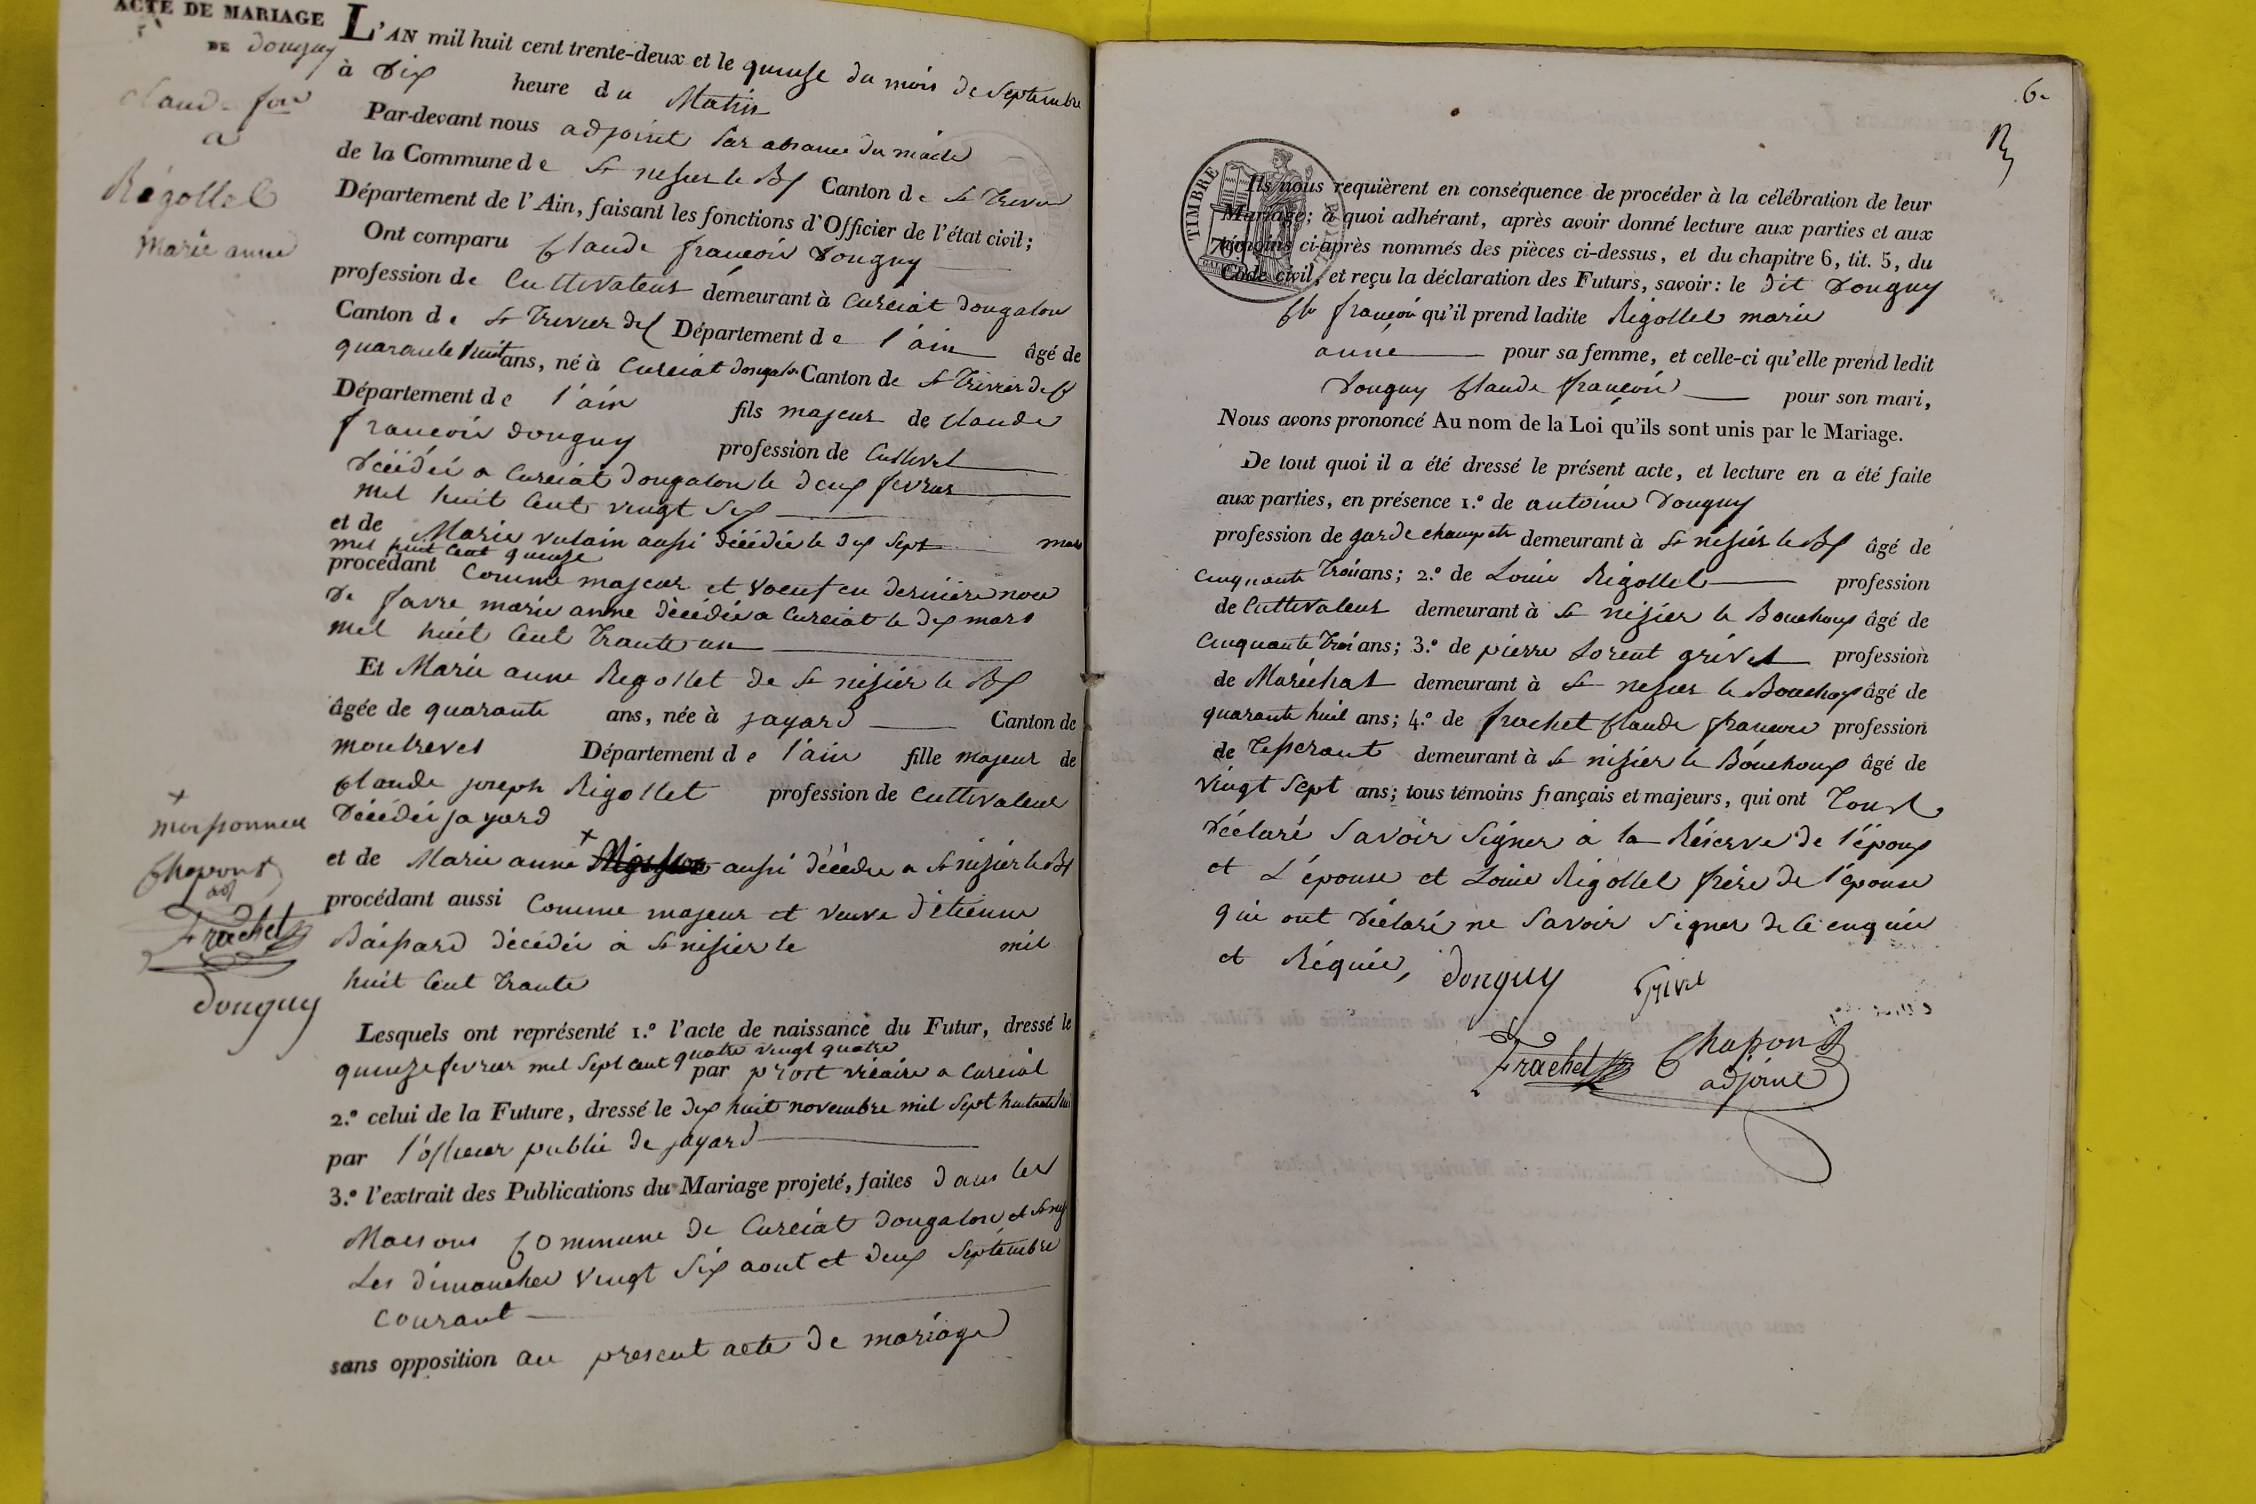 ACTE DE MARIAGE
DE donguy
claude fois
a
Régollet
marie anne
L'AN mil huit cent trente-deux et le quinze du mois de Septembre
à Dix heure du Matin
Par-devant nous adjoint par absance du maire
de la Commune de St nizier le Bx Canton de St Trivier
Département de l'Ain, faisant les fonctions d'Officier de l'état civil;
Ont comparu Claude françois Donguy
profession de Cultivateur démeurant à Curciat dongalon
Canton de St Trivier de C Département de l'ain âgé de
quarante huit ans, né à Curciat dongalon Canton de St Trivier de C
Département de l'ain fils majeur de claude
françois donguy profession de Cultivat
Décédé a Curciat Dongalon le deux fevrier
mil huit Cent vingt Six
et de Marie vulain aussi décédée le dix Sept mars
mil huit Cent quinze
procédant Comme majeur et voeuf en dernière noce
De favre marie anne décédée a Curciat le dix mars
mil huit Cent Trante un
Et Marie anne Regollet de St nizier le Bx
âgée de quarante ans, née à jayard Canton de
montrevel Département de l'ain fille majeur de
Claude joseph Rigollet profession de Cultivateur
Décédé jayard
et de Marie anne + aussi décédée a St nizier le Bx
procédant aussi Comme majeur et veuve d'étienne
décédé a St nizier le mil
huit Cent Trante
+
moissonnier
Chapont
adj
Frachet
Donguy
Lesquels ont représenté 1.º l'acte de naissance du Futur, dressé le
quinze fevrier mil Sept Cent quatre vingt quatre
par prost vicaire a Curciat
2.º celui de la Future, dressé le dix huit novembre mil Sept
par l'officier public de jayard
3.º l'extrait des Publications du Mariage projeté, faites dans les
Maisons Commune de Curciat dongalon et St niz
Les dimanches vingt Six aout et deux Septembre
Courant
sans opposition au present acte de mariage
6
TIMBRE ROYAL
70
Ils nous requièrent en conséquence de procéder à la célébration de leur
Mariage; à quoi adhérant, après avoir donné lecture aux parties et aux
témoins ci-après nommés des pièces ci-dessus, et du chapitre 6, tit. 5, du
Code civil, et reçu la déclaration des Futurs, savoir: le dit Donguy
Cde françois qu'il prend ladite Rigollet marie
anne pour sa femme, et celle-ci qu'elle prend ledit
Donguy Claude françois pour son mari,
Nous avons prononcé Au nom de la Loi qu'ils sont unis par le Mariage.
De tout quoi il a été dressé le présent acte, et lecture en a été faite
aux parties, en présence 1.º de antoine Donguy
profession de garde champetre demeurant à St nizier le Bx âgé de
cinquante Trois ans; 2.º de Louis Rigollet profession
de Cultivateur demeurant à St nizier le Bouchoux âgé de
Cinquante Trois ans; 3.º de pierre Lorent grivel profession
de Maréchal demeurant à St nizier le Bouchoux âgé de
quarante huit ans; 4.º de frachet Claude françois profession
de Tisserant demeurant à St nizier le Bouchoux âgé de
vingt Sept ans; tous témoins français et majeurs, qui ont Tous
Déclaré Savoir Signer a la Réserve de l'époux
et L'épouse et Louis Rigollet frère de l'épouse
qui ont Déclaré ne Savoir Signer de ce enquis
et Réquis,
donguy
Grivel
Frachet
Chapont
adjoint